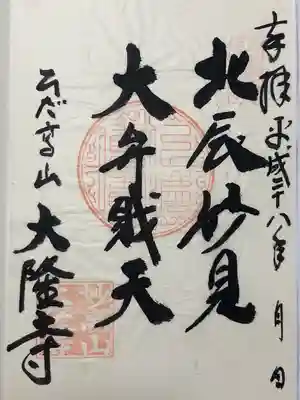 奉拝 平成二十八年 月 日
北辰妙見
大弁戝天
ひだ高山 大隆寺